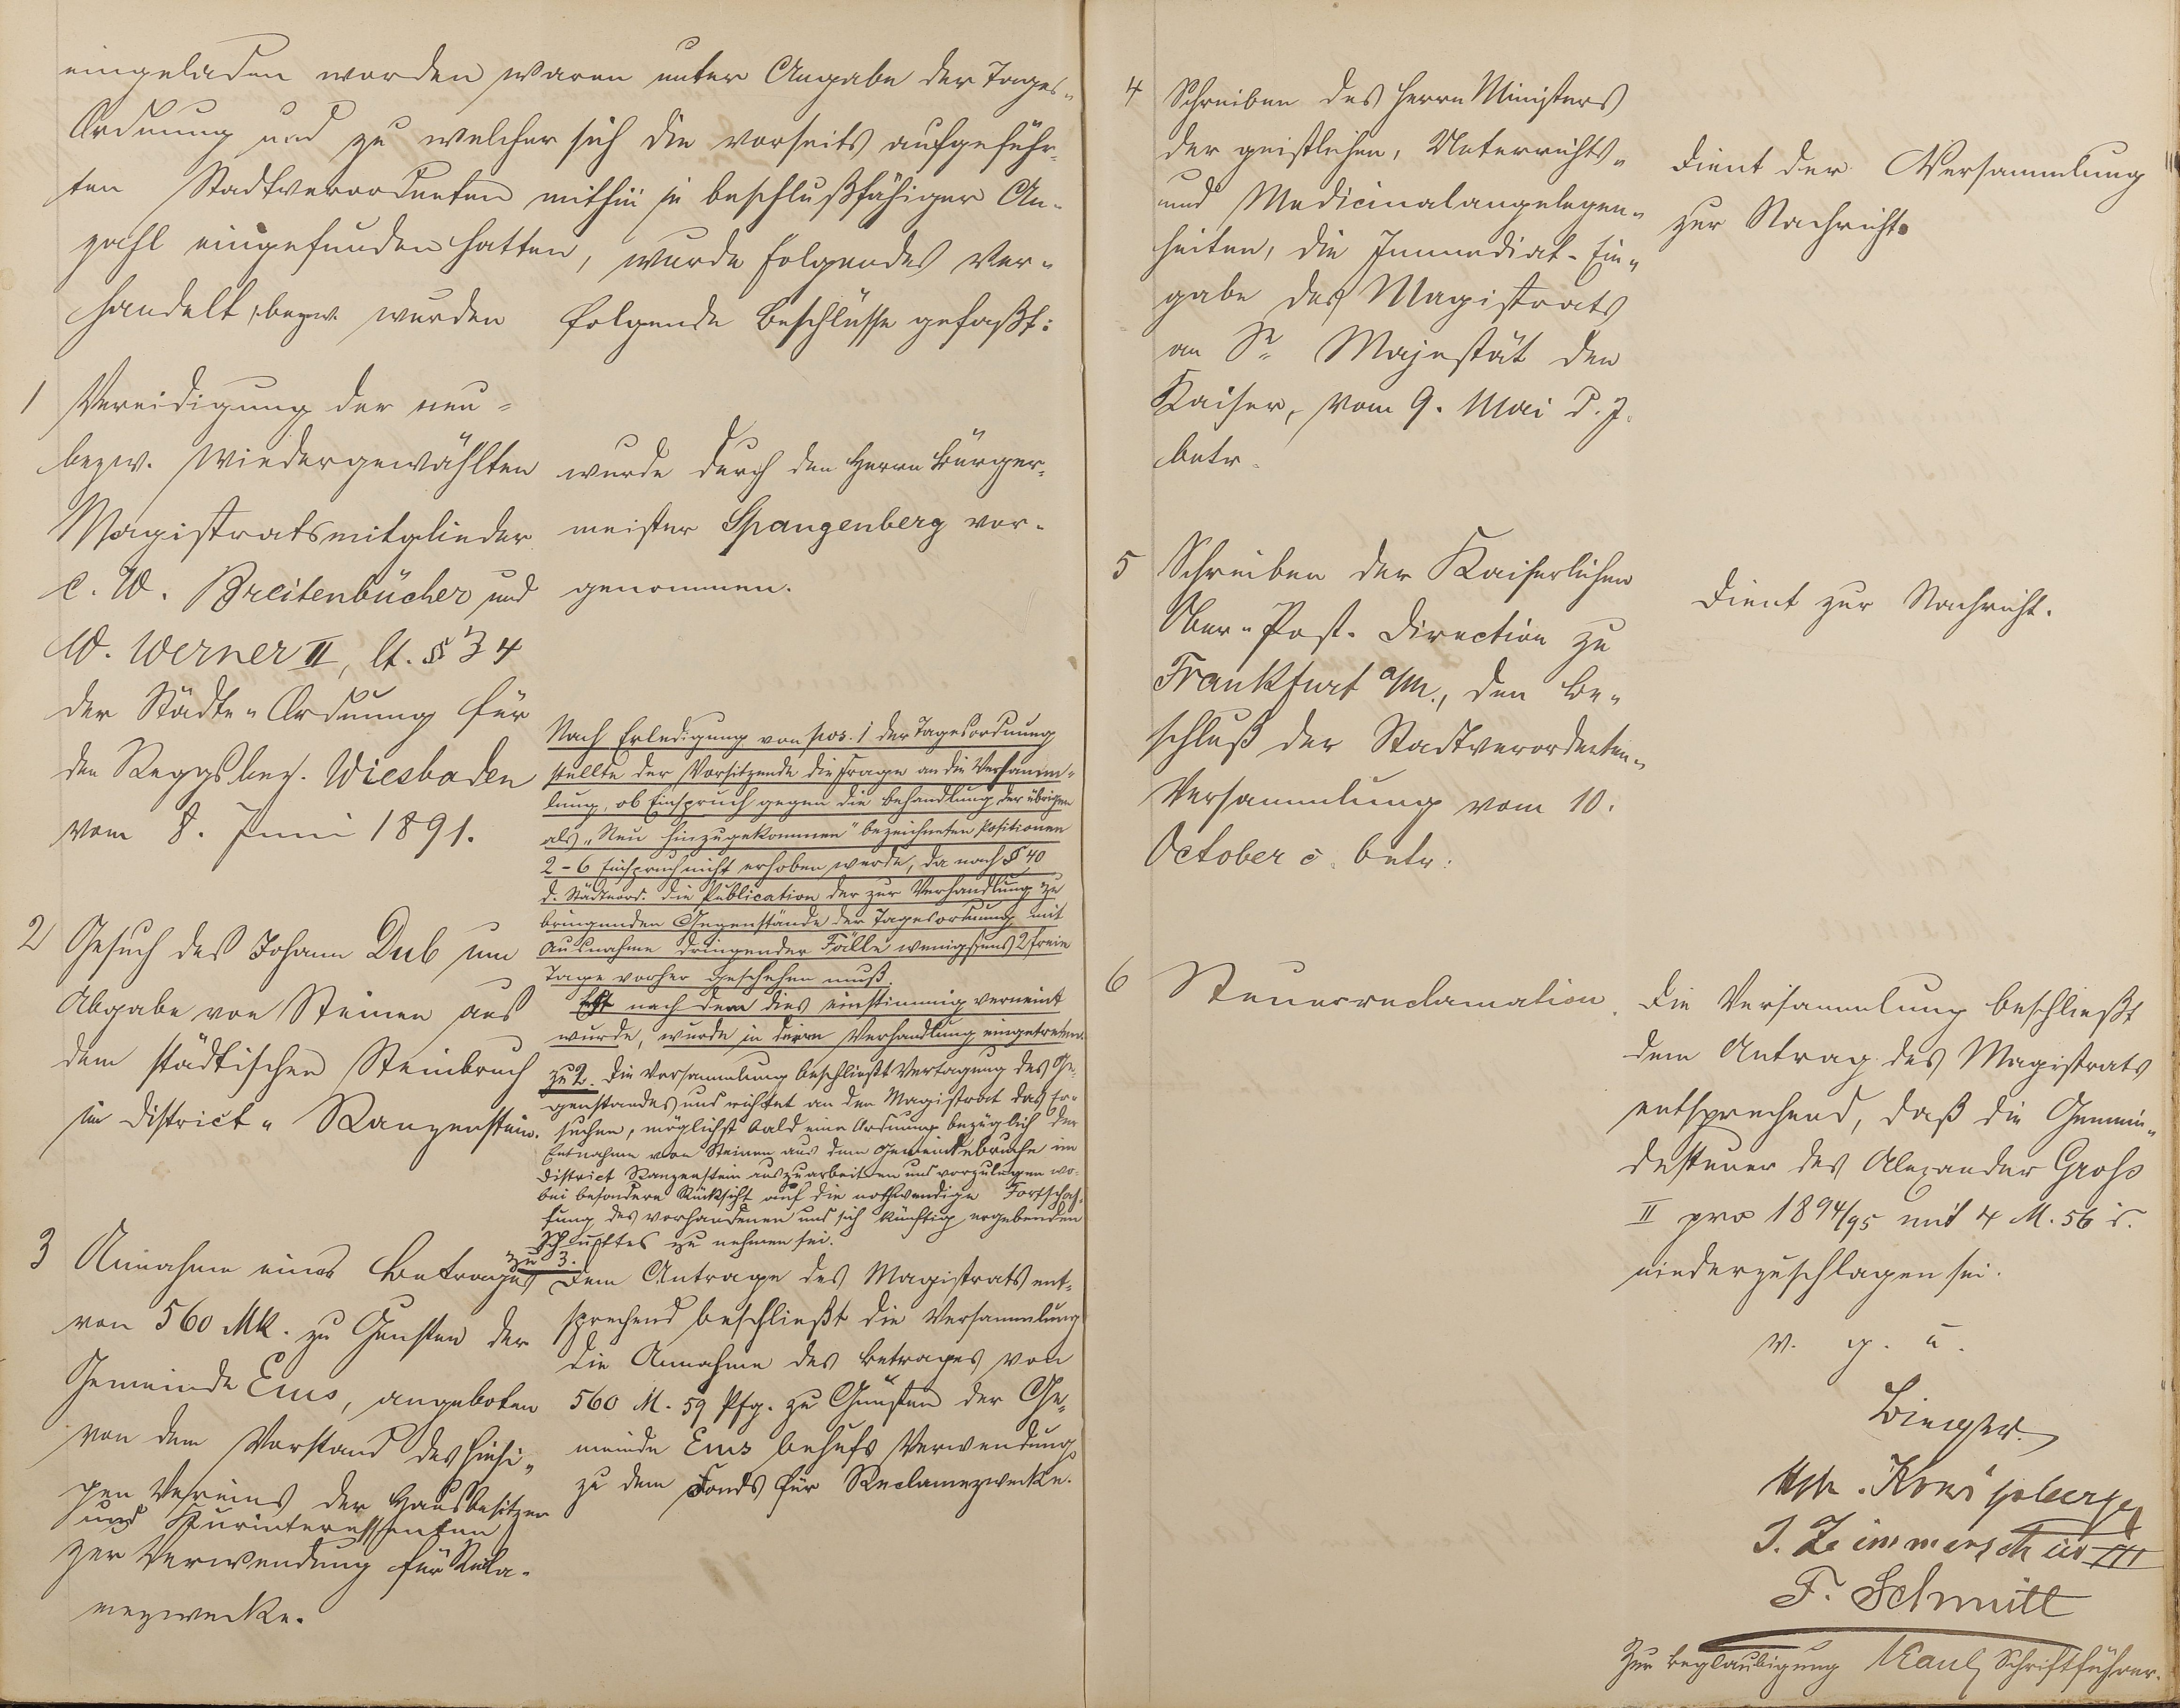 eingeladen worden waren unter Angabe der Tages-
Ordnung und zu welcher sich die vorseits aufgeführ-
ten Stadtverordneten mithin in beschlußfähiger An-
zahl eingefunden hatten, wurde folgendes ver-
handelt, bezw. wurden folgende Beschlüsse gefaßt:
1 Vereidigung der neu-
bezw. wiedergewählten
Magistratsmitglieder
C. W. Breitenbücher und
W. Werner II, lt. § 34
der Städte-Ordnung für
den Reggsbez. Wiesbaden
vom 8. Juni 1891.
wurde durch den Herrn Bürger-
meister Spangenberg vor-
genommen.
Nach Erledigung von pos. 1 der Tagesordnung
stellte der Vorsitzende die Frage an die Versamm-
lung, ob Einspruch gegen die Behandlung der übrigen
als „Neu hinzugekommen" bezeichneten Positionen
2-6 Einspruch nicht erhoben werde, da nach § 40
d. Städteord. die Publication der zur Verhandlung zu
bringenden Gegenstände der Tagesordnung mit
Ausnahme dringender Fälle wenigstens 2 freie
Tage vorher geschehen muß.
Erst nach dem dies einstimmig verneint
wurde, wurde in deren Verhandlung eingetreten.
2 Gesuch des Johann Dub um
Abgabe von Steinen aus
dem städtischen Steinbruch
im District „Ranzenstein.
zu 2. Die Versammlung beschließt Vertagung des Ge-
genstandes und richtet an den Magistrat das Er-
suchen, möglichst bald eine Ordnung bezüglich der
Entnahme von Steinen aus dem Gemeindebruche im
District Ranzenstein auszuarbeiten und vorzulegen wo-
bei besondere Rücksicht auf die nothwendige Fortschaf-
fung des vorhandenen und sich künftig ergebenden
Schuttes zu nehmen sei.
3 Annahme eines Betrages
von 560 Mk. zu Gunsten der
Gemeinde Ems, angeboten
von dem Vorstand des hiesi-
gen Vereins der Hausbesitzer
und Kurinteressenten
zur Verwendung für Recla-
mezwecke.
zu 3.
Dem Antrage des Magistrats ent-
sprechend beschließt die Versammlung
die Annahme des Betrages von
560 M. 59 Pfg. zu Gunsten der Ge-
meinde Ems behufs Verwendung
zu dem Fonds für Reclamezwecke.
4 Schreiben des Herrn Ministers
der geistlichen, Unterrichts-
und Medicinalangelegen-
heiten, die Immediat-Ein-
gabe des Magistrats
an Sr. Majestät den
Kaiser, vom 9. Mai d. J.
betr.
Dient der Versammlung
zur Nachricht.
5 Schreiben der Kaiserlichen
Ober-Post-Direction zu
Frankfurt a/M., den Be-
schluß der Stadtverordneten-
Versammlung vom 10.
October c. betr.
Dient zur Nachricht.
6 Steuerreclamation.
Die Versammlung beschließt
dem Antrag des Magistrats
entsprechend, daß die Gemein-
desteuer des Alexander Groß
II pro 1894/95 mit 4 M. 56 d.
niederzuschlagen sei.
v. g. u.
F. Schmitt
Zur Beglaubigung Kaul, Schriftführer.